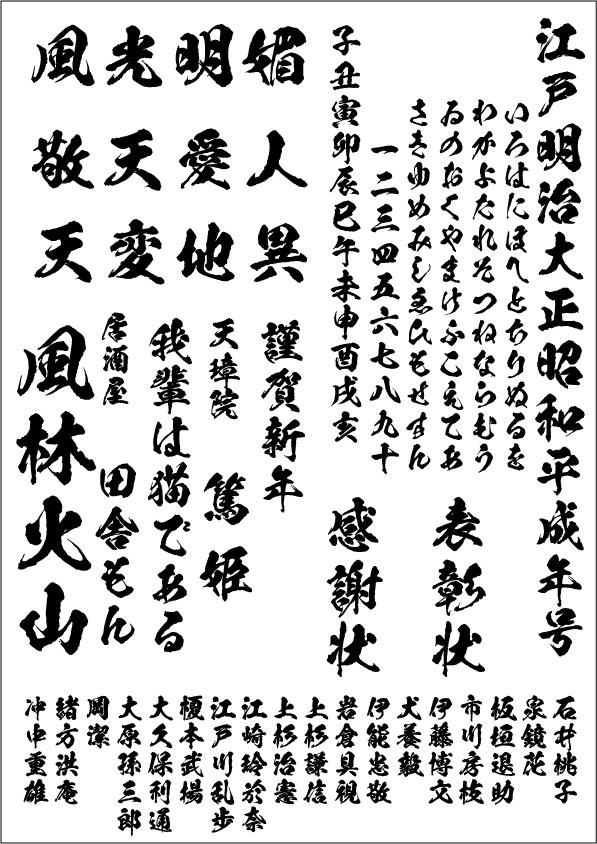 江戸明治大正昭和平成年号
いろはにほへとちりぬるを
わかよたれそつねならむう
ゐのおくやまけふこえてあ
さきゆめみしゑひもせすん
一二三四五六七八九十
子丑寅卯辰巳午未申酉戌亥
表彰状
感謝状
媚人異
明愛地
光天変
風敬天
謹賀新年
天璋院
篤姫
我輩は猫である
居酒屋
田舎もん
風林火山
石井桃子
泉鏡花
板垣退助
市川房枝
伊藤博文
犬養毅
伊能忠敬
岩倉具視
上杉謙信
上杉治憲
江崎玲於奈
江戸川乱歩
榎本武揚
大久保利通
大原孫三郎
岡潔
緒方洪庵
沖中重雄